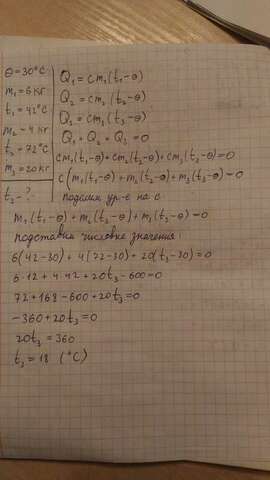 θ=30°C
m₁=6 кг
t₁=42°C
m₂=4 кг
t₂=72°C
m₃=20 кг
t₃-?
Q₁=cm₁(t₁-θ)
Q₂=cm₂(t₂-θ)
Q₃=cm₃(t₃-θ)
Q₁+Q₂+Q₃=0
cm₁(t₁-θ)+cm₂(t₂-θ)+cm₃(t₃-θ)=0
c(m₁(t₁-θ)+m₂(t₂-θ)+m₃(t₃-θ)=0
поделим ур-е на c
m₁(t₁-θ)+m₂(t₂-θ)+m₃(t₃-θ)=0
подставим числовые значения
6(42-30)+4(72-30)+20(t₃-30)=0
6·12+4·42+20t₃-600=0
72+168-600+20t₃=0
-360+20t₃=0
20t₃=360
t₃=18 (°C)